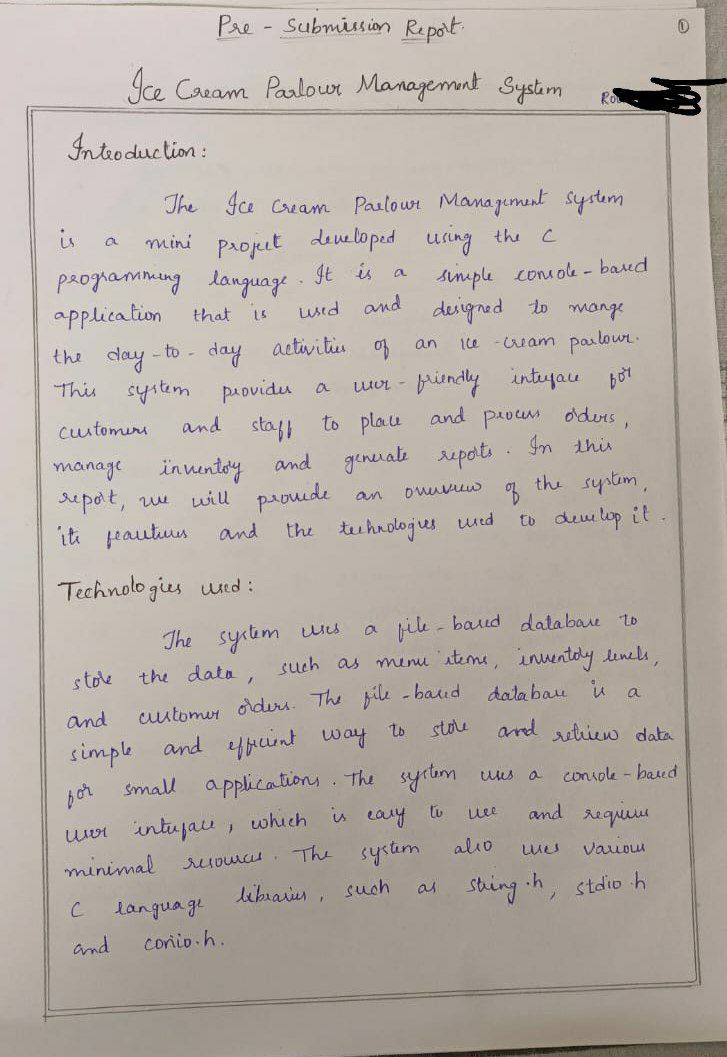 Pre - Submission Report.
①
Ice Cream Parlour Management System
Introduction:
The Ice Cream Parlour Management System
is a mini project developed using the C
programming language. It is a simple console-based
application that is used and designed to mange
the day-to-day activities of an ice-cream parlour.
This system provides a user-friendly interface for
customers and staff to place and process orders,
manage inventory and generate reports. In this
report, we will provide an overview of the system,
its feautures and the technologies used to develop it.
Technologies used:
The system uses a file-based database to
store the data, such as menu items, inventory levels,
and customer orders. The file-based database is a
simple and efficient way to store and retrieve data
for small applications. The system uses a console-based
user interface, which is easy to use and requires
minimal resources. The system also uses various
C language libraries, such as string.h, stdio.h
and conio.h.